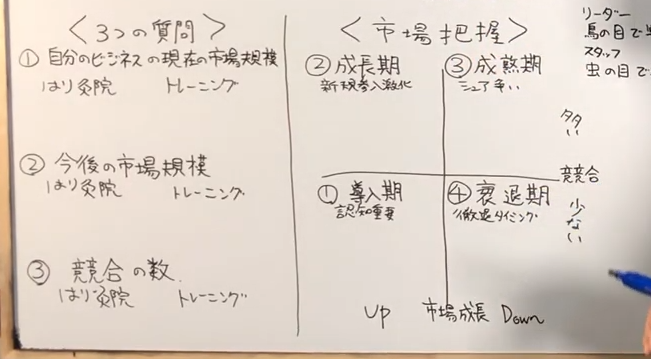 〈3つの質問〉
① 自分のビジネスの現在の市場規模
はり灸院 トレーニング
② 今後の市場規模
はり灸院 トレーニング
③ 競合の数
はり灸院 トレーニング
〈市場把握〉
② 成長期
新規参入激化
③ 成熟期
シェア争い
多い
競合
① 導入期
認知重要
④ 衰退期
撤退タイミング
少ない
Up 市場成長 Down
リーダー
鳥の目で
スタッフ
虫の目で